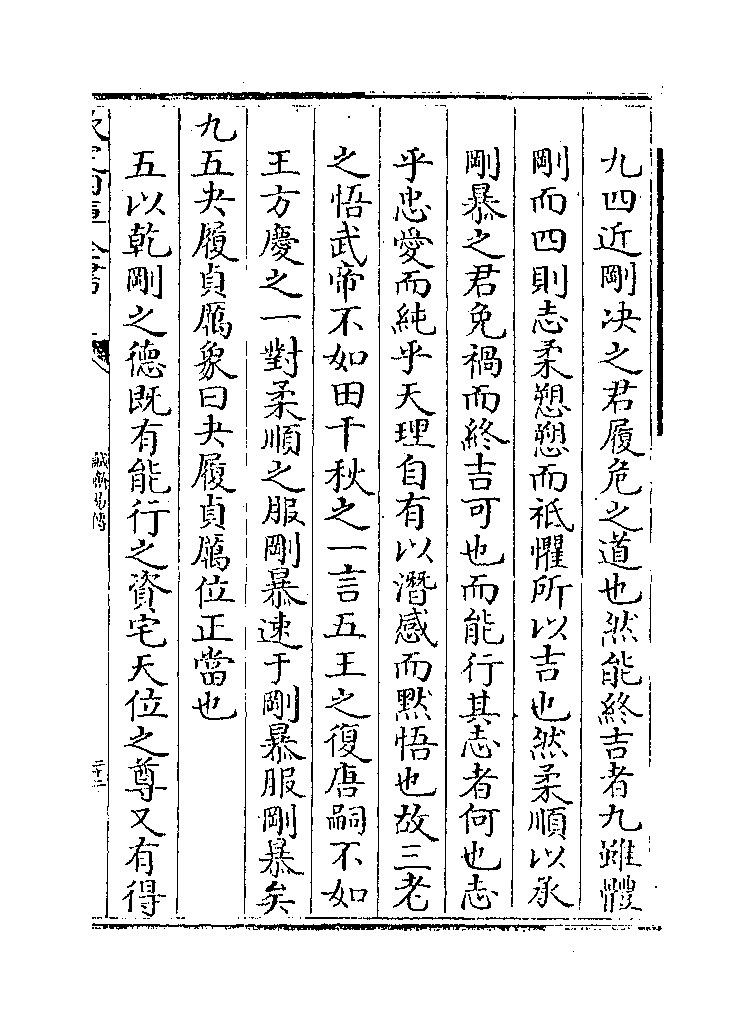 九四近剛决之君履危之道也然能終吉者九雖體
剛而四則志柔愬愬而祗懼所以吉也然柔順以承
剛暴之君免禍而終吉可也而能行其志者何也志
乎忠愛而純乎天理自有以潛感而黙悟也故三老
之悟武帝不如田千秋之一言五王之復唐嗣不如
王方慶之一對柔順之服剛暴速于剛暴服剛暴矣
九五夬履貞厲象曰夬履貞厲位正當也
五以乾剛之德既有能行之資宅天位之尊又有得
欽定四庫全書
誠齋易傳